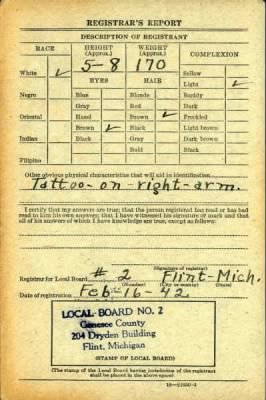 REGISTRAR'S REPORT
DESCRIPTION OF REGISTRANT
RACE HEIGHT (Approx.) WEIGHT (Approx.) COMPLEXION
5-8 170
White ✓ Sallow
EYES HAIR Light ✓
Negro Blue Blonde Ruddy
Gray Red Dark
Oriental Hazel Brown ✓ Freckled
Brown ✓ Black Light brown
Indian Black Gray Dark brown
Bald Black
Filipino
Other obvious physical characteristics that will aid in identification
Tattoo-on-right-arm.
I certify that my answers are true; that the person registered has read or has had
read to him his own answers; that I have witnessed his signature or mark and that
all of his answers of which I have knowledge are true, except as follows:
(Signature of registrar)
Registrar for Local Board # 2 Flint-Mich.
(Number) (City or county) (State)
Date of registration Feb-16-42
LOCAL BOARD NO. 2
Genesee County
204 Dryden Building
Flint, Michigan
(STAMP OF LOCAL BOARD)
(The stamp of the Local Board having jurisdiction of the registrant
shall be placed in the above space)